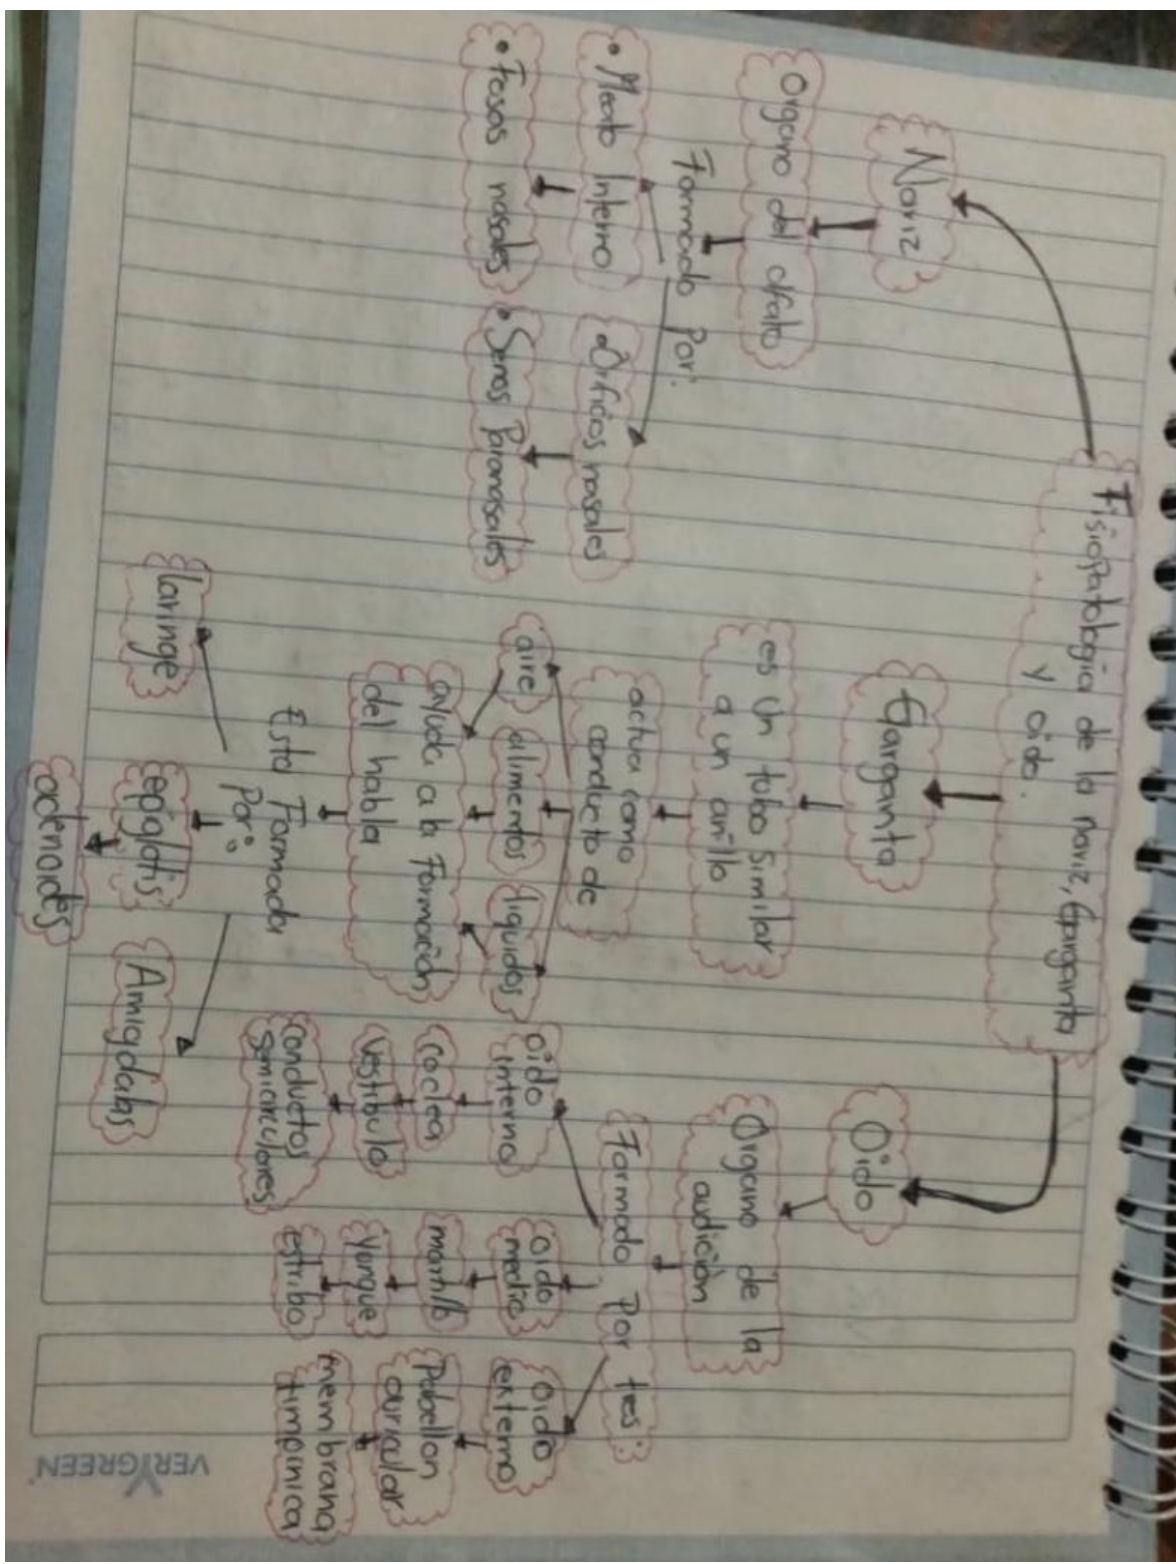 Fisiopatologia de la nariz, Garganta
y oido.
Nariz
Organo del olfato
Formado Por:
• Meato Interno
• Orificios nasales
• Fosas nasales
• Senos Paranasales
Garganta
es un tubo similar
a un anillo
actua como
conducto de
aire
alimentos
liquidos
ayuda a la Formación
del habla
Esta Formada
Por:
laringe
epiglotis
Amigdalas
adenoides
Oido
Organo de la
audición
Formado Por tres:
oido
interno
coclea
vestibulo
conductos
semicirculares
oido
medio
martillo
Yunque
estribo
oido
externo
Pabellon
auricular
membrana
timpinica
VERYGREEN